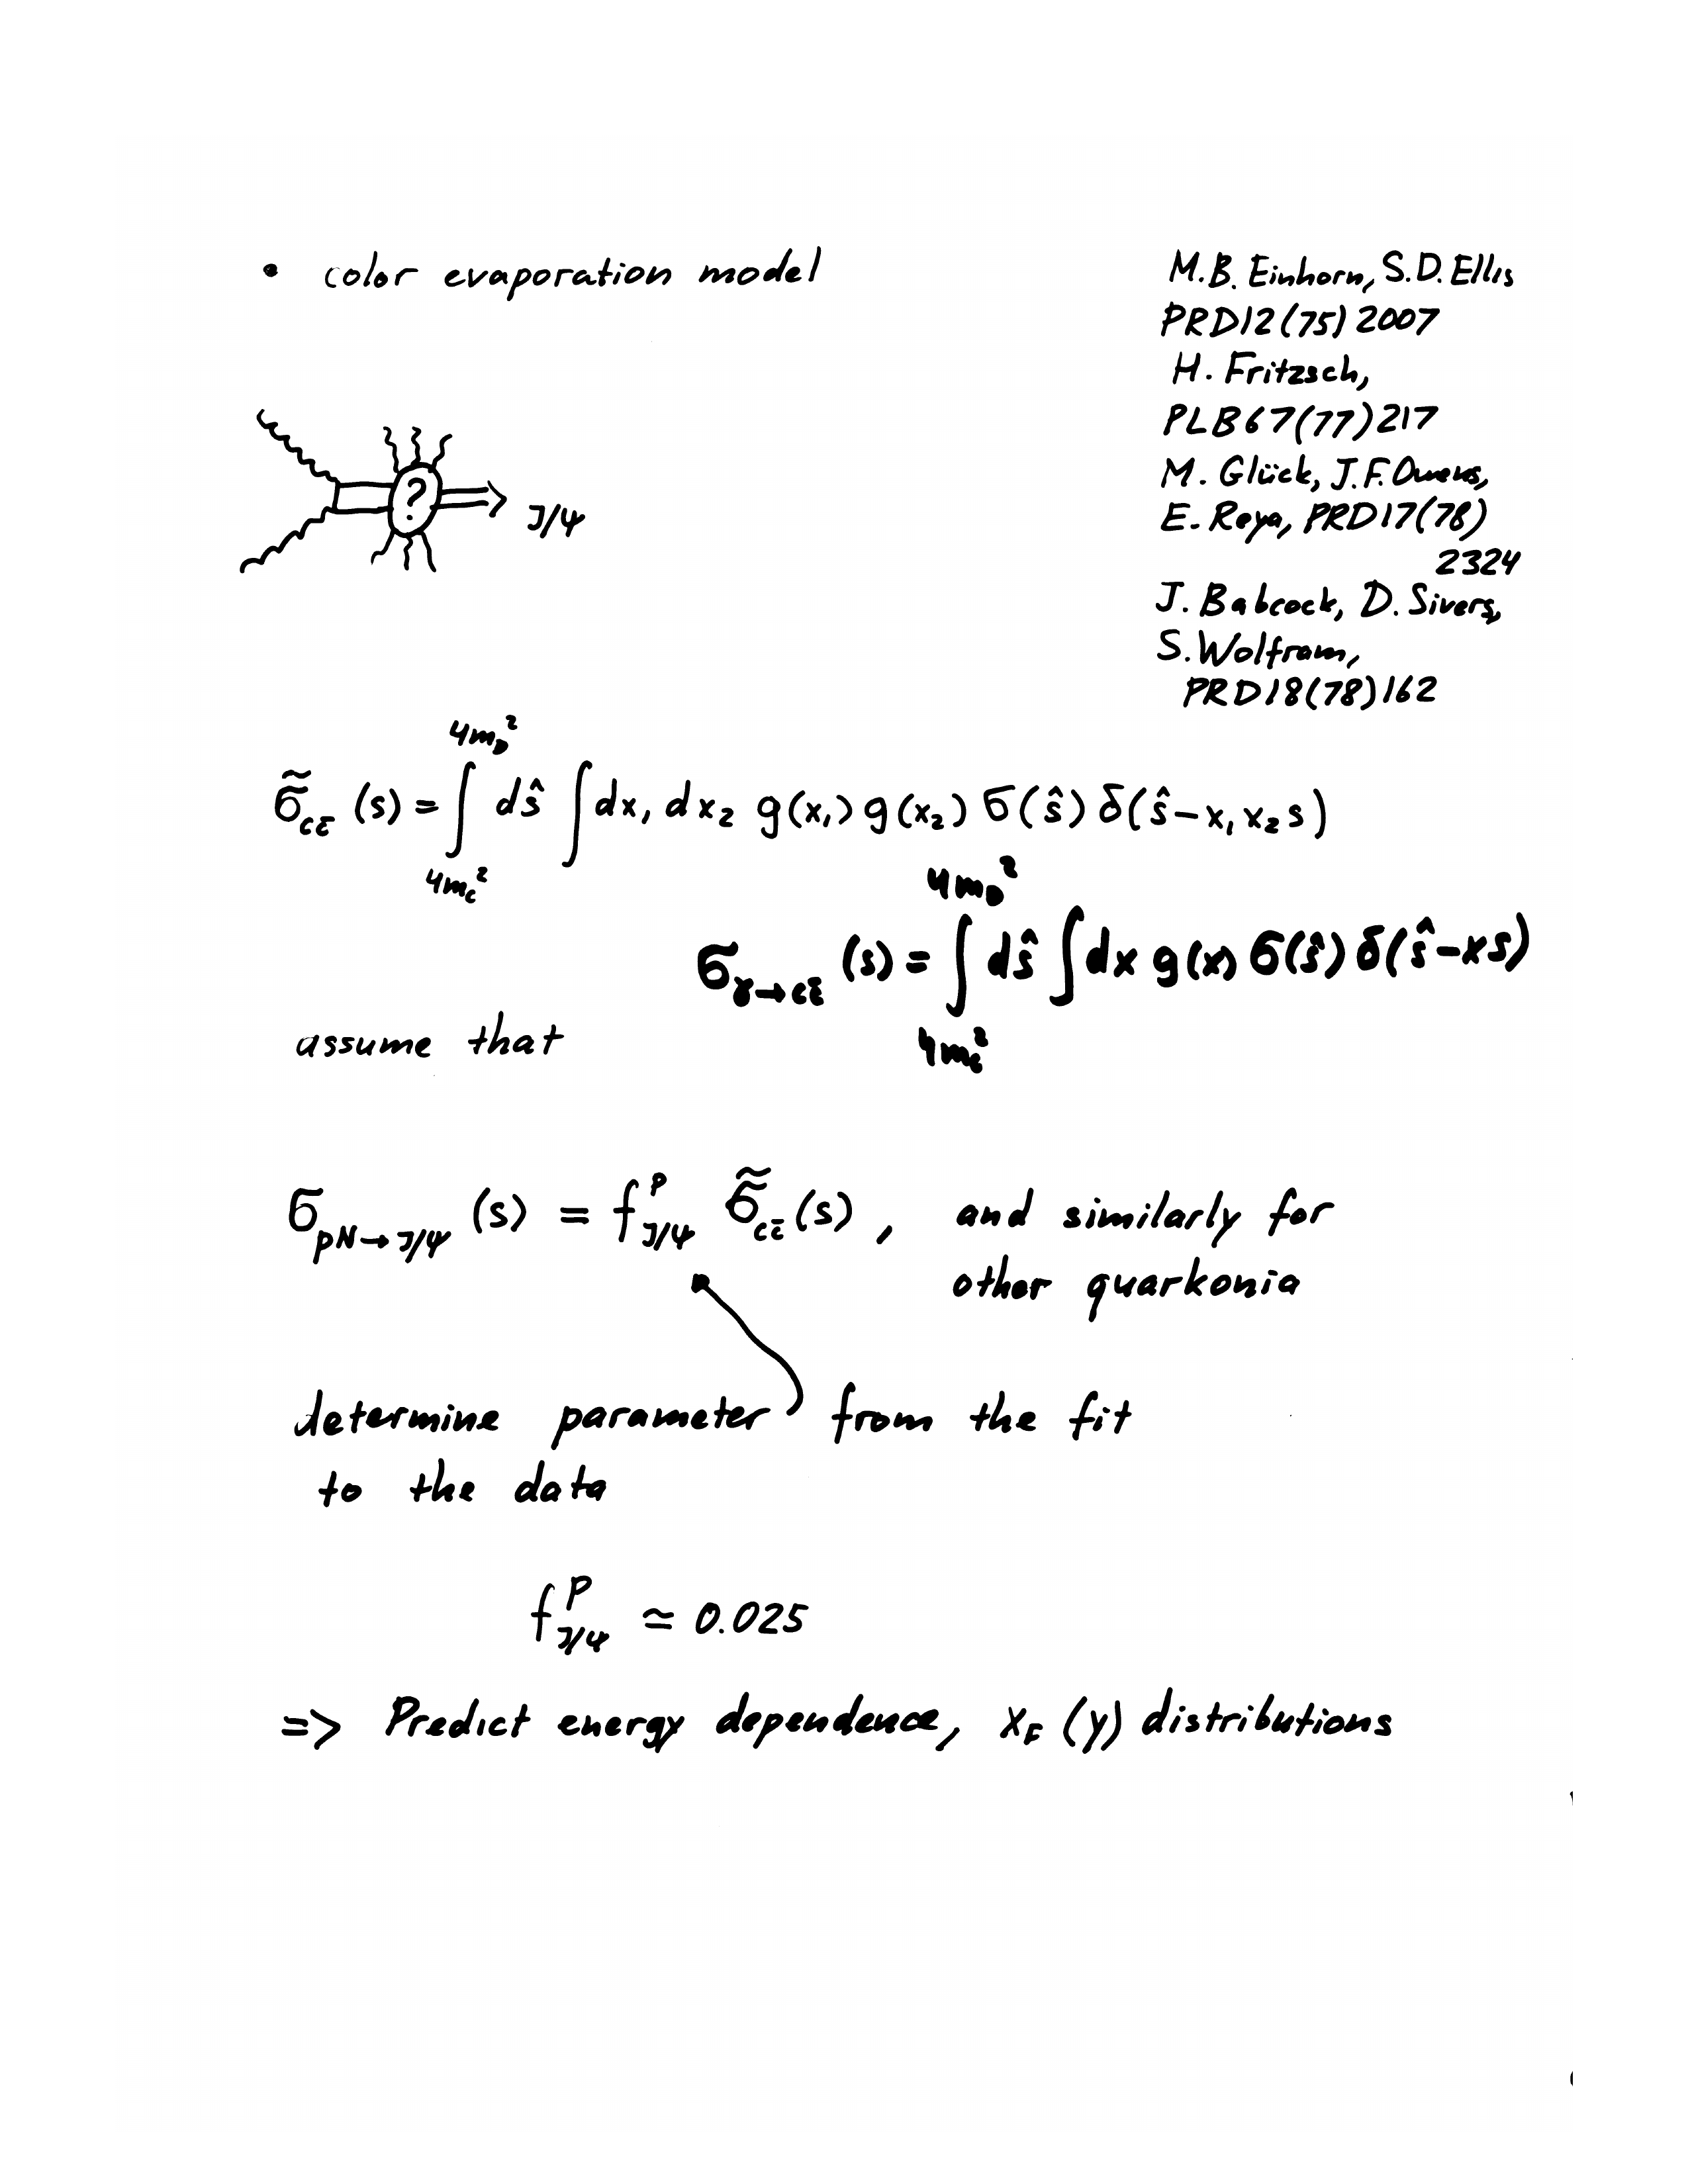 • color evaporation model
M.B. Einhorn, S.D. Ellis
PRD12(75)2007
H. Fritzsch,
PLB67(77)217
M. Glück, J.F. Owens,
E. Reya, PRD17(78)
2324
J. Babcock, D. Sivers,
S. Wolfram,
PRD18(78)162
?
J/ψ
σ̃_{cc̄} (s) = ∫_{4m_c²}^{4m_D²} dŝ ∫ dx₁ dx₂ g(x₁) g(x₂) σ(ŝ) δ(ŝ − x₁x₂s)
σ_{γ→cc̄} (s) = ∫_{4m_c²}^{4m_D²} dŝ ∫ dx g(x) σ(ŝ) δ(ŝ−xs)
assume that
σ_{pN→J/ψ} (s) = f^p_{J/ψ} σ̃_{cc̄}(s) , and similarly for
other quarkonia
determine parameter from the fit
to the data
f^p_{J/ψ} ≃ 0.025
=> Predict energy dependence, x_F (y) distributions